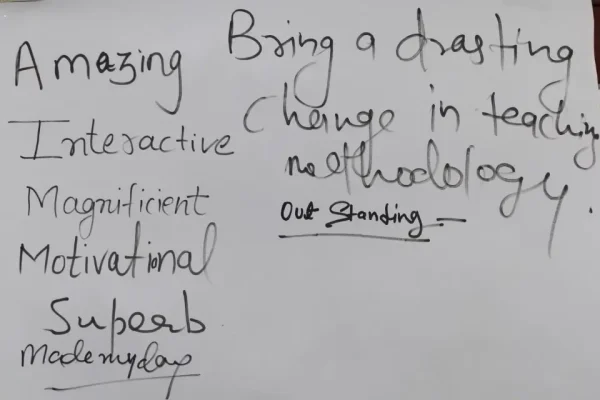 Amazing
Interactive
Magnificient
Motivational
Superb
Made my day
Bring a drasting
Change in teaching
methodology.
Out Standing